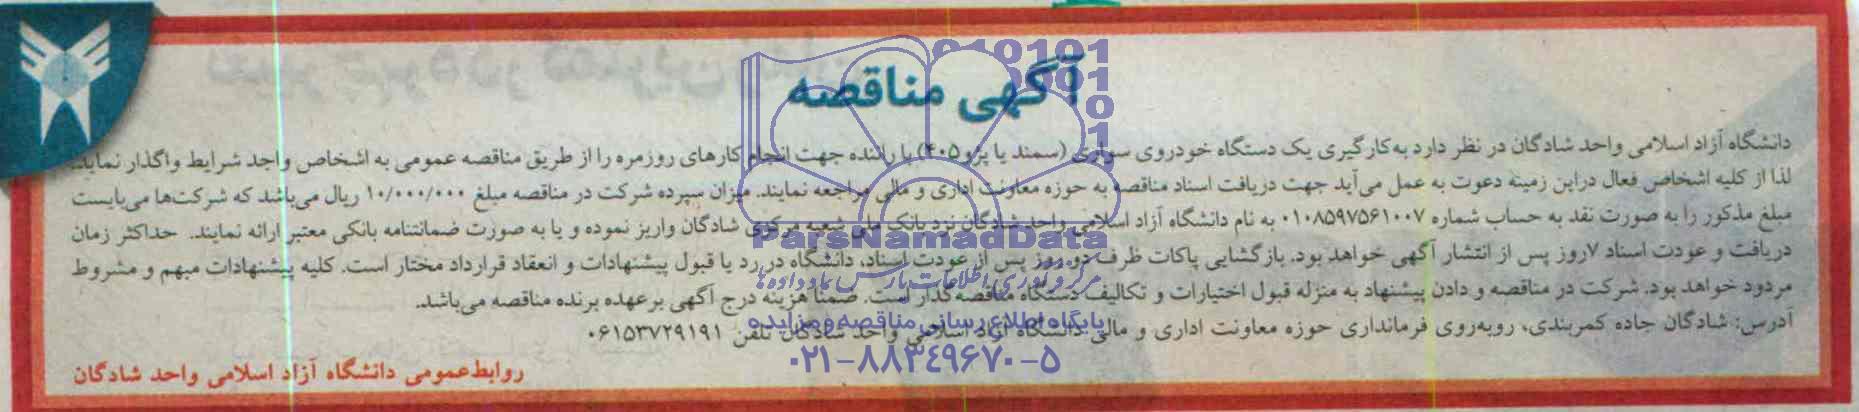 آگهی مناقصه
دانشگاه آزاد اسلامی واحد شادگان در نظر دارد به‌کارگیری یک دستگاه خودروی سواری (سمند یا پژو ۴۰۵) با راننده جهت انجام کارهای روزمره را از طریق مناقصه عمومی به اشخاص واجد شرایط واگذار نماید.
لذا از کلیه اشخاص فعال دراین زمینه دعوت به عمل می‌آید جهت دریافت اسناد مناقصه به حوزه معاونت اداری و مالی مراجعه نمایند. میزان سپرده شرکت در مناقصه مبلغ ۱۰/۰۰۰/۰۰۰ ریال می‌باشد که شرکت‌ها می‌بایست
مبلغ مذکور را به صورت نقد به حساب شماره ۰۱۰۸۵۹۷۵۶۱۰۰۷ به نام دانشگاه آزاد اسلامی واحد شادگان نزد بانک ملی شعبه مرکزی شادگان واریز نموده و یا به صورت ضمانتنامه بانکی معتبر ارائه نمایند. حداکثر زمان
دریافت و عودت اسناد ۷روز پس از انتشار آگهی خواهد بود. بازگشایی پاکات ظرف دو روز پس از عودت اسناد، دانشگاه در رد یا قبول پیشنهادات و انعقاد قرارداد مختار است. کلیه پیشنهادات مبهم و مشروط
مردود خواهد بود. شرکت در مناقصه و دادن پیشنهاد به منزله قبول اختیارات و تکالیف دستگاه مناقصه‌گذار است. ضمنا هزینه درج آگهی برعهده برنده مناقصه می‌باشد.
آدرس: شادگان جاده کمربندی، روبه‌روی فرمانداری حوزه معاونت اداری و مالی دانشگاه آزاد اسلامی واحد شادگان تلفن ۰۶۱۵۳۷۲۹۱۹۱
روابط‌عمومی دانشگاه آزاد اسلامی واحد شادگان
ParsNamadData
مرکز فرآوری اطلاعات پارس نماد داده‌ها
پایگاه اطلاع رسانی مناقصه و مزایده
۰۲۱-۸۸۳۴۹۶۷۰-۵